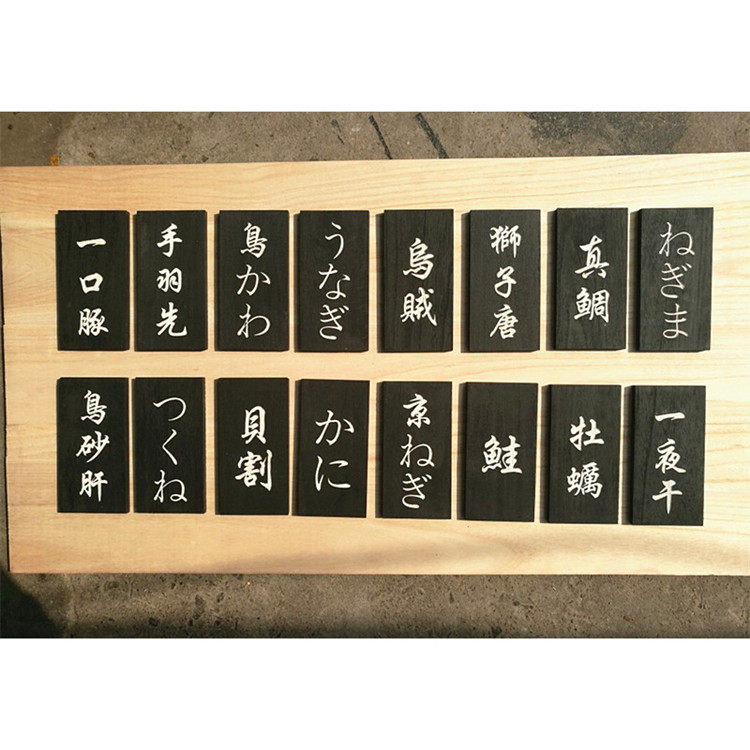 ねぎま
真鯛
獅子唐
烏賊
うなぎ
鳥かわ
手羽先
一口豚
一夜干
牡蠣
鮭
京ねぎ
かに
貝割
つくね
鳥砂肝